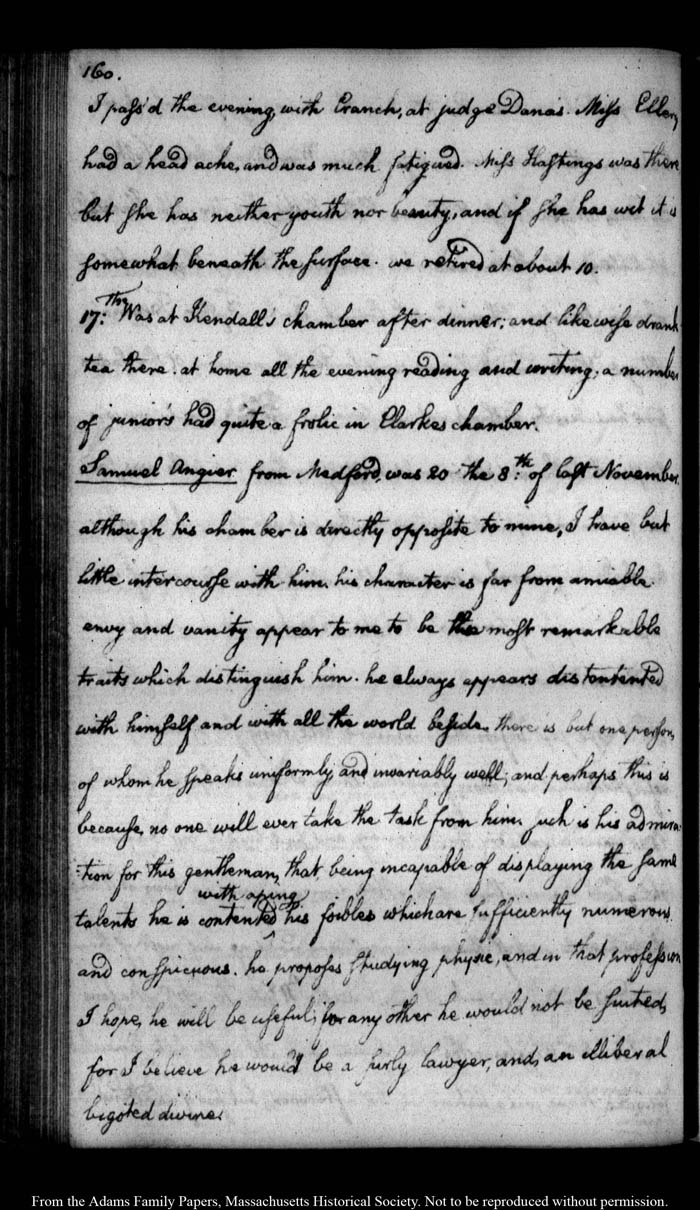 160.
I pass'd the evening, with Cranch, at judge Dana's. Miss Ellery
had a head ache, and was much fatigued. Miss Hastings was there
but she has neither youth nor beauty, and if she has wit it is
somewhat beneath the surface. we retired at about 10.
17:th Was at Kendall's chamber after dinner; and likewise drank
tea there. at home all the evening reading and writing; a number
of junior's had quite a frolic in Clarkes chamber.
Samuel Angier from Medford, was 20 the 8:th of last November.
although his chamber is directly opposite to mine, I have but
little intercourse with him. his character is far from amiable.
envy and vanity appear to me to be the most remarkable
traits which distinguish him. he always appears discontented
with himself and with all the world beside. there is but one person,
of whom he speaks uniformly and invariably well; and perhaps this is
because, no one will ever take the task from him. such is his admira-
-tion for this gentleman, that being incapable of displaying the same
with aping
talents he is contented ^ his foibles which are sufficiently numerous
and conspicuous. he proposes studying physic, and in that profession
I hope, he will be useful; for any other he would not be suited,
for I believe he would be a surly lawyer, and, an illiberal
bigoted divine.
From the Adams Family Papers, Massachusetts Historical Society. Not to be reproduced without permission.